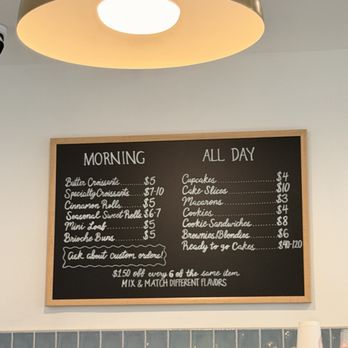 MORNING
Butter Croissants ........ $5
Specialty Croissants ..... $7-10
Cinnamon Rolls ........ $5
Seasonal Sweet Rolls $6-7
Mini Loaf ............. $5
Brioche Buns .......... $5
Ask about custom orders!
ALL DAY
Cupcakes ............. $4
Cake Slices ........... $10
Macarons ............. $3
Cookies .............. $4
Cookie Sandwiches ..... $8
Brownies/Blondies ..... $6
Ready to go Cakes ..... $90-120
$1.50 off every 6 of the same item
MIX & MATCH DIFFERENT FLAVORS